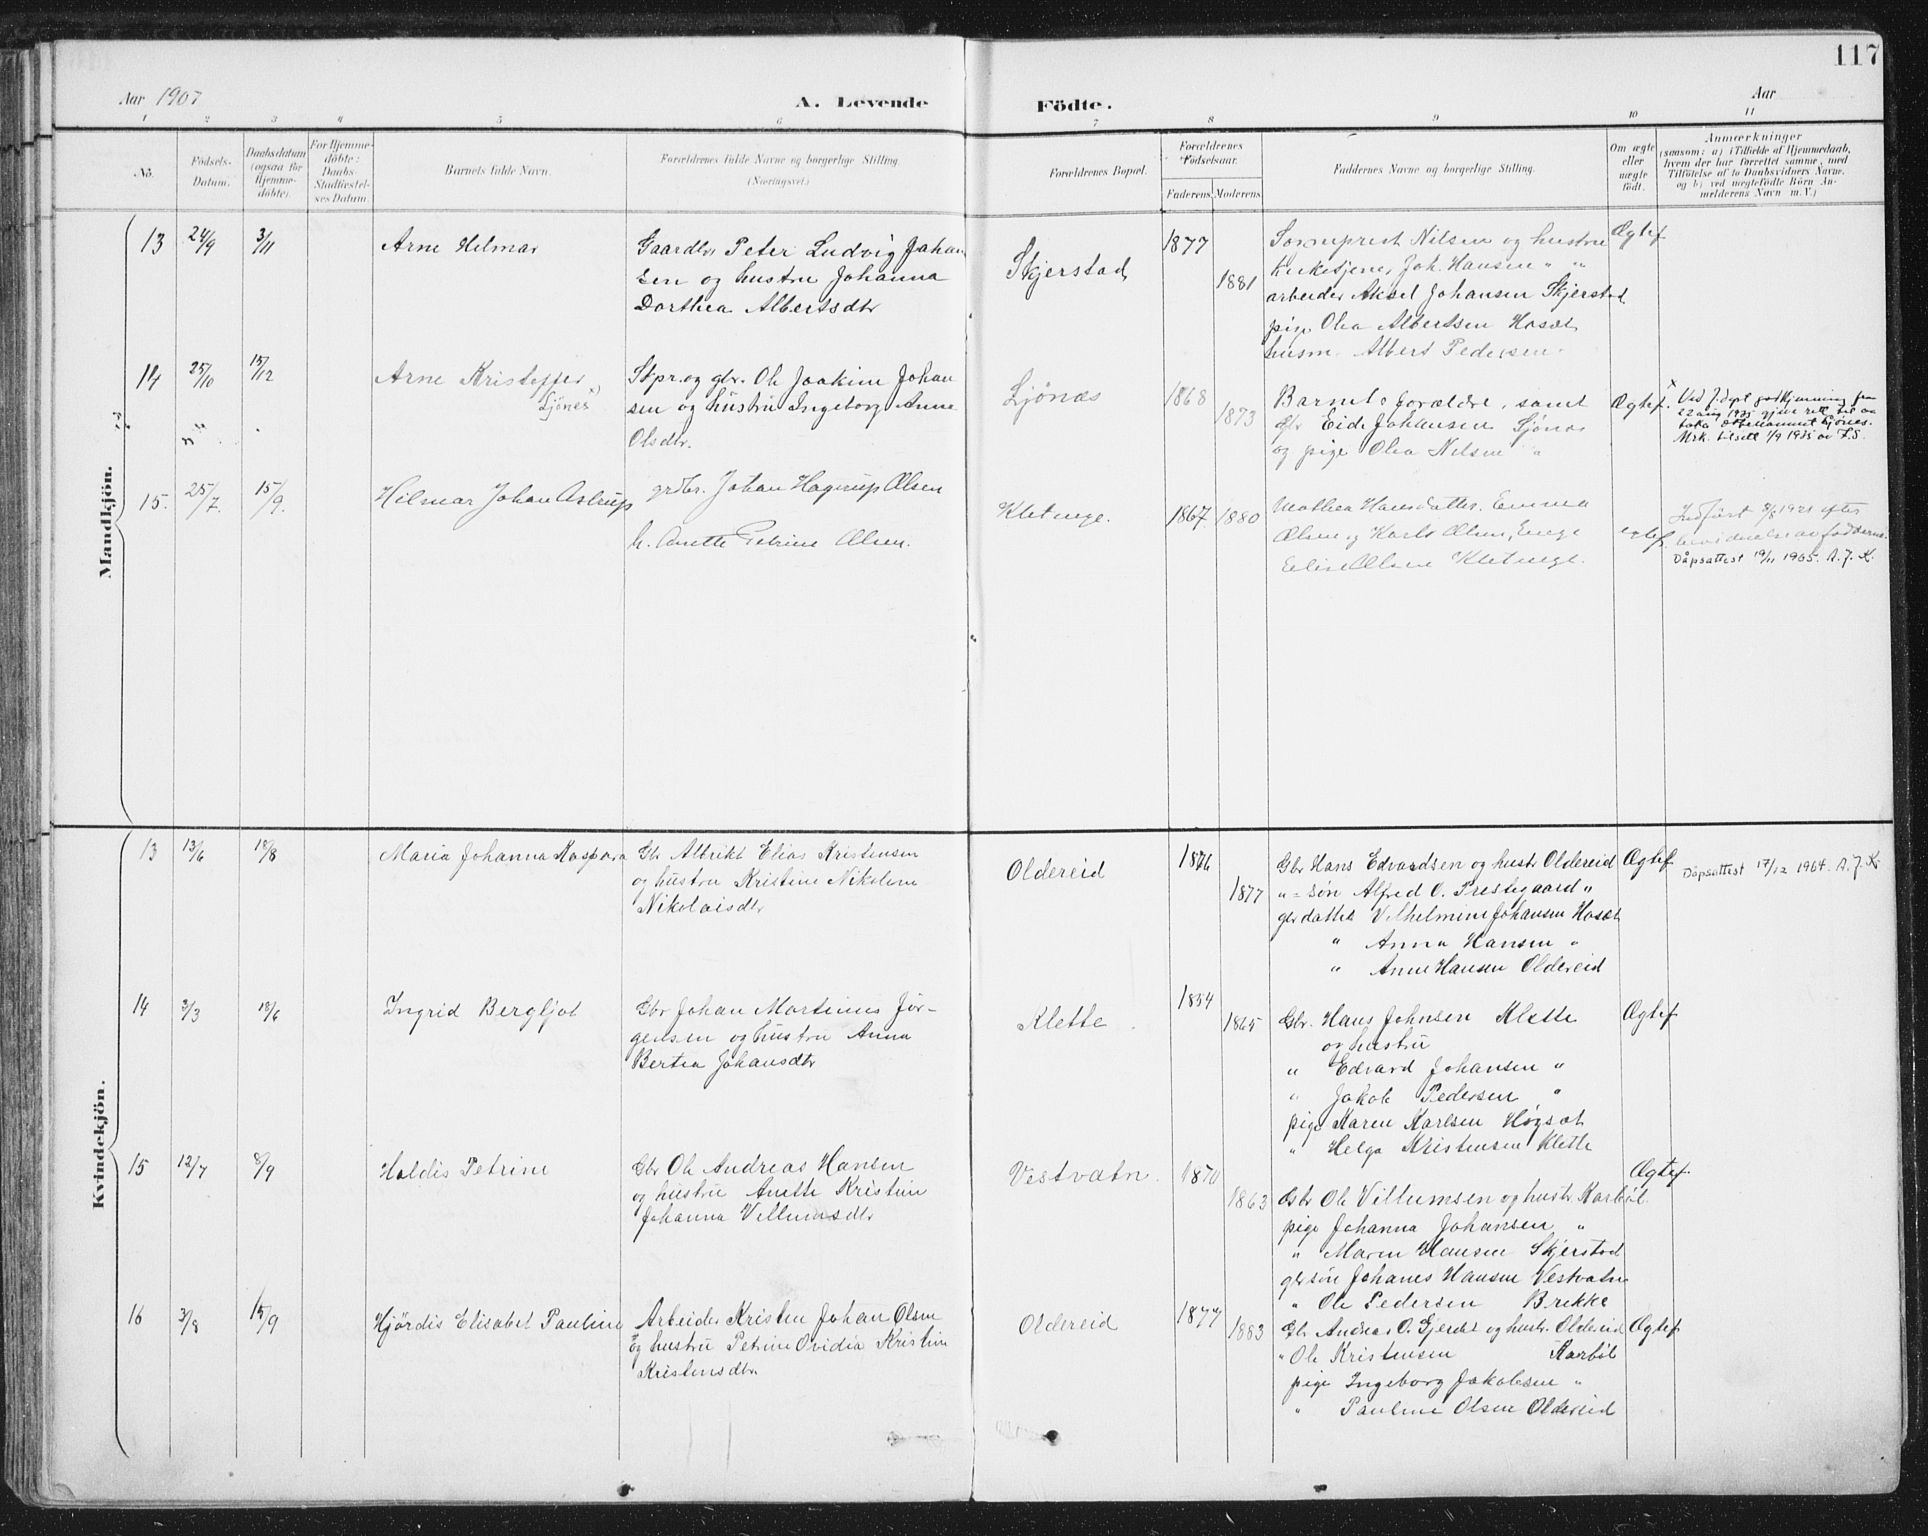 117
Aar 1907
A. Levende
Födte.
Aar
1 2 3 4 5 6 7 8 9 10 11
No.
Födsels-
Datum.
Daabsdatum
(ogsaa for
Hjemme-
döbte).
For Hjemme-
döbte:
Daabs
Stadfæstel-
ses Datum.
Barnets fulde Navn.
Forældrenes fulde Navne og borgerlige Stilling
(Næringsvei.)
Forældrenes Bopæl.
Forældrenes
Födselsaar.
Faderens. Moderens.
Faddernes Navne og borgerlige Stilling.
Om ægte
eller
uægte
födt.
Anmærkninger
(saasom: a) i Tilfælde af Hjemmedaab,
hvem der har forrettet samme, med
Tilföielse af to Daabsvidners Navne.
og b) ved uægtefödte Börn An-
melderens Navn m. V.)
Mandkjön.
13 24/9 3/11 Arne Hilmar
Gaardbr. Peter Ludvig Johan
sen og hustru Johanna
Dorthea Albertsdtr
Skjerstad
1877
1881
Sogneprest Nilsen og hustru
Kirketjener Joh. Hansen " "
arbeider Aksel Johansen Skjerstad
pige Olea Albertsen Hosæt
husm. Albert Pedersen
Ægtef
14 25/10 15/12 Arne Kristoffer x)
Ljönes
Skpr. og gbr. Ole Joakim Johan
sen og hustru Ingeborg Anna
Olsdtr.
Ljönæs
1868
1873
Barnets forældre, samt
Gbr Eide Johansen Ljönæs
og pige Olea Nilsen "
Ægtef.
x Ved J.dept godkjenning fra
22 aug 1935 gjeve rett til aa
taka ættenamnet Ljönes.
Mrk. tilsett 1/9 1935 av F.S.
15. 25/7. 15/9. Hilmar Johan Astrup
grdbr. Johan Hagerup Olsen
h. Anette Petrine Olsen.
Kletunge.
1867 1880
Mathea Hansdatter, Emma
Olsen og Karls Olsen, Enge
Elise Olsen Kletunge.
egtef.
Indført 8/8 1921 efter
bevidnelse av fadderne.
Dåpsattest 19/11 1965. A.J.K.
Kvindekjön.
13 13/6 18/8 Maria Johanna Kaspara
Gbr Albrikt Elias Kristensen
og hustru Kristine Nikoline
Nikolaisdtr
Oldereid
1876
1877
Gbr Hans Edvardsen og hustr Oldereid
" = søn Alfred O. Prestegaard "
gbrdatter Vilhelmine Johansen Hosæt
" Anna Hansen "
" Anne Hansen Oldereid
Ægtef
Dåpsattest 17/12 1964. A.J.K
14 3/3 18/6 Ingrid Bergljot
Gbr Johan Martinus Jør-
gensen og hustru Anna
Bertea Johansdtr
Klette
1854
1865
Gbr. Hans Johnsen Klette
og hustru
" Edvard Johansen "
" Jakob Pedersen "
pige Karen Karlsen Høgsæt
" Helga Kristensen Klette
Ægtef
15 12/7 8/9 Haldis Petrine
Gbr Ole Andreas Hansen
og hustru Anette Kristine
Johanna Villumsdtr
Vestvatn.
1870
1863
Gbr Ole Villumsen og hustr Karbøl
pige Johanna Johansen "
" Maren Hansen Skjerstad
gbrsøn Johanes Hansen Vestvatn
" Ole Pedersen Brekke
Ægtef
16 3/8 15/9 Hjördis Elisabet Pauline
Arbeider Kristen Johan Olsen
og hustru Petrine Ovidia Kristine
Kristensdtr.
Oldereid
1877
1883
Gbr Andreas O. Gjerdet og hustr. Oldereid
" Ole Kristensen Karbøl
pige Ingeborg Jakobsen "
" Pauline Olsen Oldereid
Ægtef